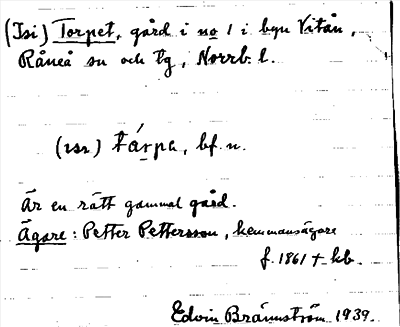 (Isi) Torpet, gård i no 1 i byn Vitån,
Råneå sn och tg, Norrb. l.
(isı) tárpa, bf. n.
Är en rätt gammal gård.
Ägare: Petter Pettersson, hemmansägare
f. 1861 + hb.
Edvin Brännström 1939.